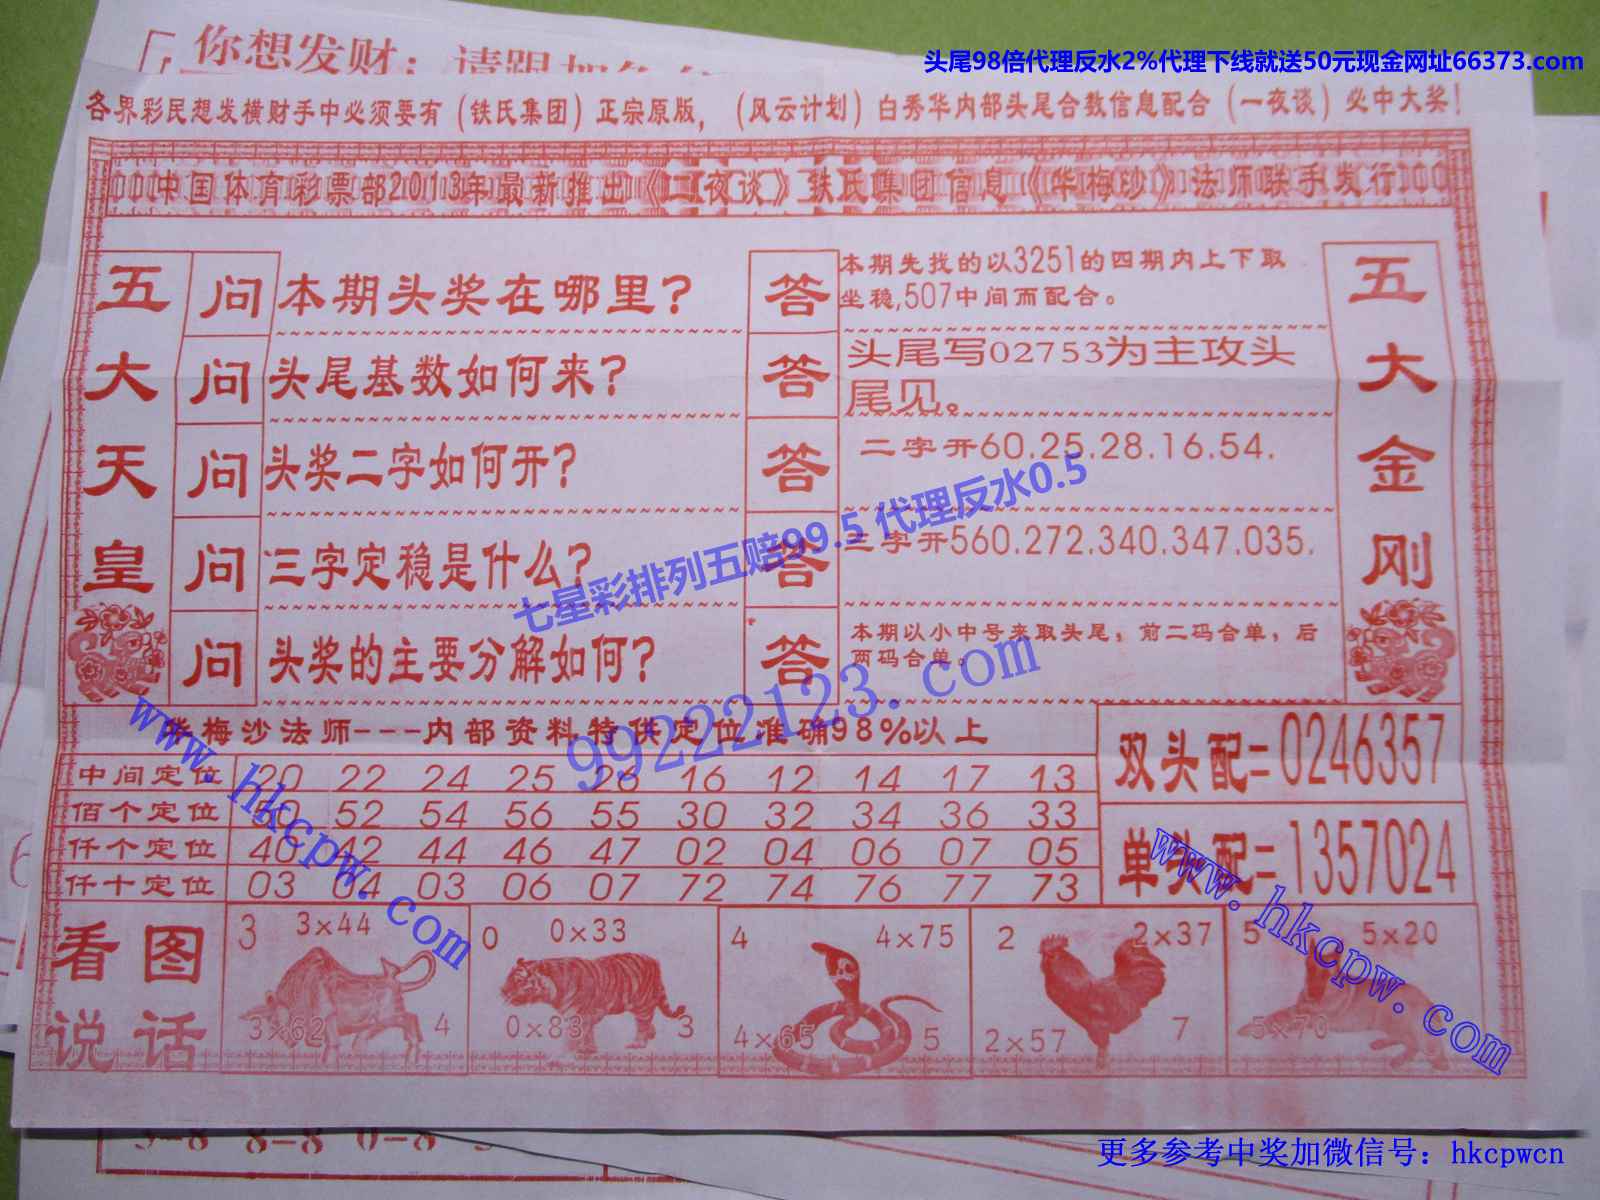 你想发财：请跟
头尾98倍代理反水2%代理下线就送50元现金网址66373.com
各界彩民想发横财手中必须要有（铁氏集团）正宗原版，（风云计划）白秀华内部头尾合数信息配合（一夜谈）必中大奖！
中国体育彩票部2013年最新推出《一夜谈》铁氏集团信息《华梅沙》法师联手发行
五大天皇
问 本期头奖在哪里？
答 本期先找的以3251的四期内上下取
坐稳,507中间而配合。
问 头尾基数如何来？
答 头尾写02753为主攻头
尾见。
问 头奖二字如何开？
答 二字开60.25.28.16.54.
问 三字定稳是什么？
答 三字开560.272.340.347.035.
问 头奖的主要分解如何？
答 本期以小中号来取头尾；前二码合单，后
两码合单。
五大金刚
七星彩排列五赔99.5 代理反水0.5
99222123.com
www.hkcpw.com
华梅沙法师---内部资料特供定位准确98%以上
中间定位 20 22 24 25 26 16 12 14 17 13
佰个定位 50 52 54 56 55 30 32 34 36 33
仟个定位 40 42 44 46 47 02 04 06 07 05
仟十定位 03 04 03 06 07 72 74 76 77 73
双头配=0246357
单头配=1357024
www.hkcpw.com
看图
说话
3 3×44
3×62 4
0 0×33
0×83 3
4 4×75
4×65 5
2 2×37
2×57 7
5 5×20
5×70
更多参考中奖加微信号：hkcpwcn